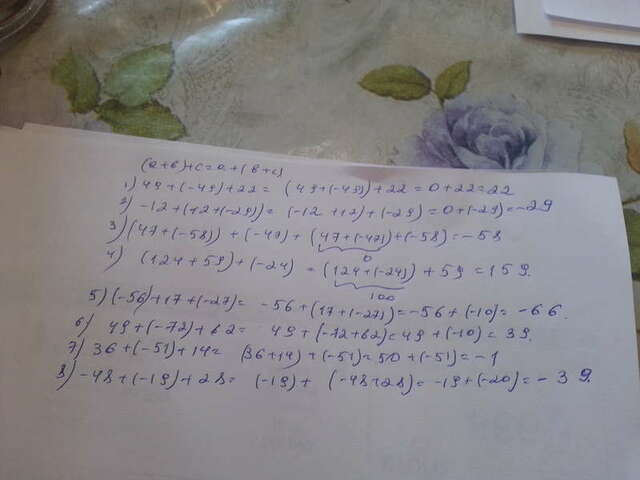 (a+b)+c=a+(b+c)
1) 49+(-49)+22= (49+(-49))+22=0+22=22
2) -12+(12+(-29))= (-12+12)+(-29)=0+(-29)=-29
3) (47+(-58))+(-47)+(47+(-47))+(-58)=-58
0
4) (124+59)+(-24) =(124+(-24))+59=159.
100
5) (-56)+17+(-27)= -56+(17+(-27))=-56+(-10)=-66.
6) 49+(-72)+62= 49+(-72+62)=49+(-10)=39.
7) 36+(-51)+14= (36+14)+(-51)=50+(-51)=-1
8) -48+(-19)+28= (-19)+ (-48+28)=-19+(-20)=-39.